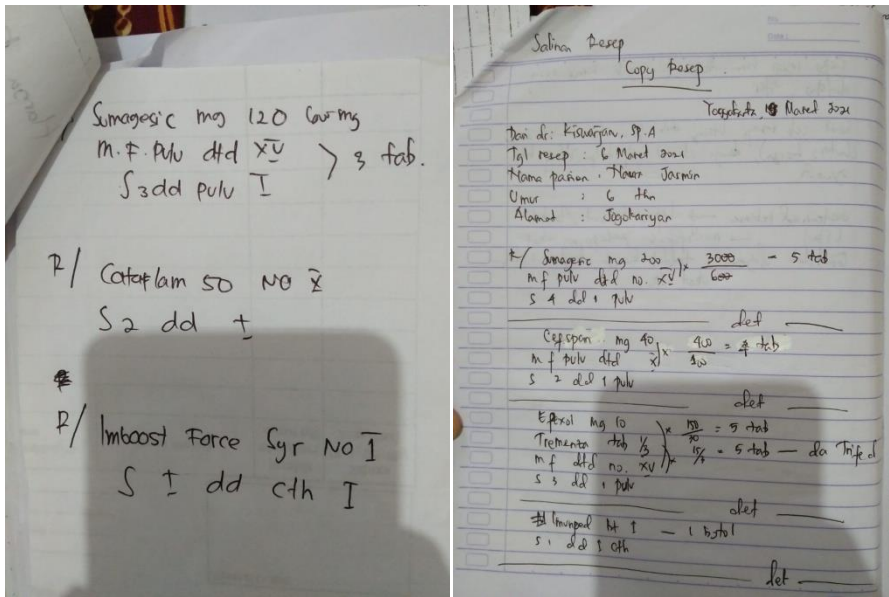 Sumagesic mg 120
m.f. pulv dtd XV > 3 tab.
S 3dd pulv I
R/ Cataflam 50 NO X
S 2 dd ±
R/ Imboost Force Syr NO I
S ± dd Cth I
Salinan Resep
Copy Resep
Yogyakarta, Maret 2021
Dari dr: Kiswarjan, Sp.A
Tgl resep : 6 Maret 2021
Nama pasien : Jasmin
Umur : 6 thn
Alamat : Jogokariyan
R/ Sumagesic mg 200 x 3000/600 = 5 tab
m f pulv dtd no. XV
S 4 dd 1 pulv
det
Cefspan mg 40 x 400/100 = 4 tab
m f pulv dtd X
S 2 dd 1 pulv
det
Epexol mg 10 x 150/30 = 5 tab
Tremenza tab 1/3 x 15/3 = 5 tab — da Trifed
m f dtd no. XV
S 3 dd 1 pulv
det
Imunped bt 1 — 1 botol
S 1 dd 1 cth
det